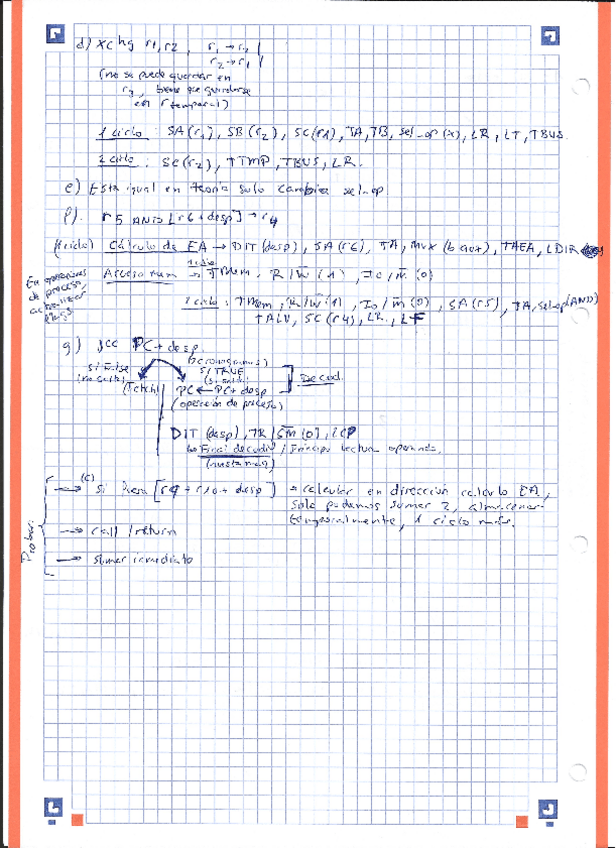 d) xchg r1,r2 , r1 → r2
r2 → r1
(no se puede guardar en
r2, tiene que guardarse
en r temporal)
1 ciclo : SA(r1), SB(r2), SC(r1), TA, TB, sel-op(x), LR, LT, TBUS
2 ciclo : SC(r2), TTMP, TBUS, LR.
e) Esta igual en teoría solo cambia sel-op.
f). r5 AND [r6+desp] → r4
(1 ciclo) Cálculo de EA → DIT(desp), SA(r6), TA, Mux, TAEA, LDIR
Acceso mem 1 ciclo → TMem, R/W(1), IO/M(0)
En operaciones
de proceso,
actualizar
flags
1 ciclo : TMem, R/W(1), IO/M(0), SA(r5), TA, Sel-op(AND)
TALU, SC(r4), LR, LF
g) jcc PC+desp.
si false
(no salta)
(Fetch)
si TRUE
(si salta)
PC ← PC+desp
(operación de proceso)
Decod.
DIT(desp)
Final decodif / Principio lectura operando
(c)
Probar:
→ si fuera [r9+r10+desp] = calcular en dirección calculo EA,
solo podemos sumar 2, almacenar
temporalmente, 1 ciclo más.
→ call/return
→ sumar inmediato